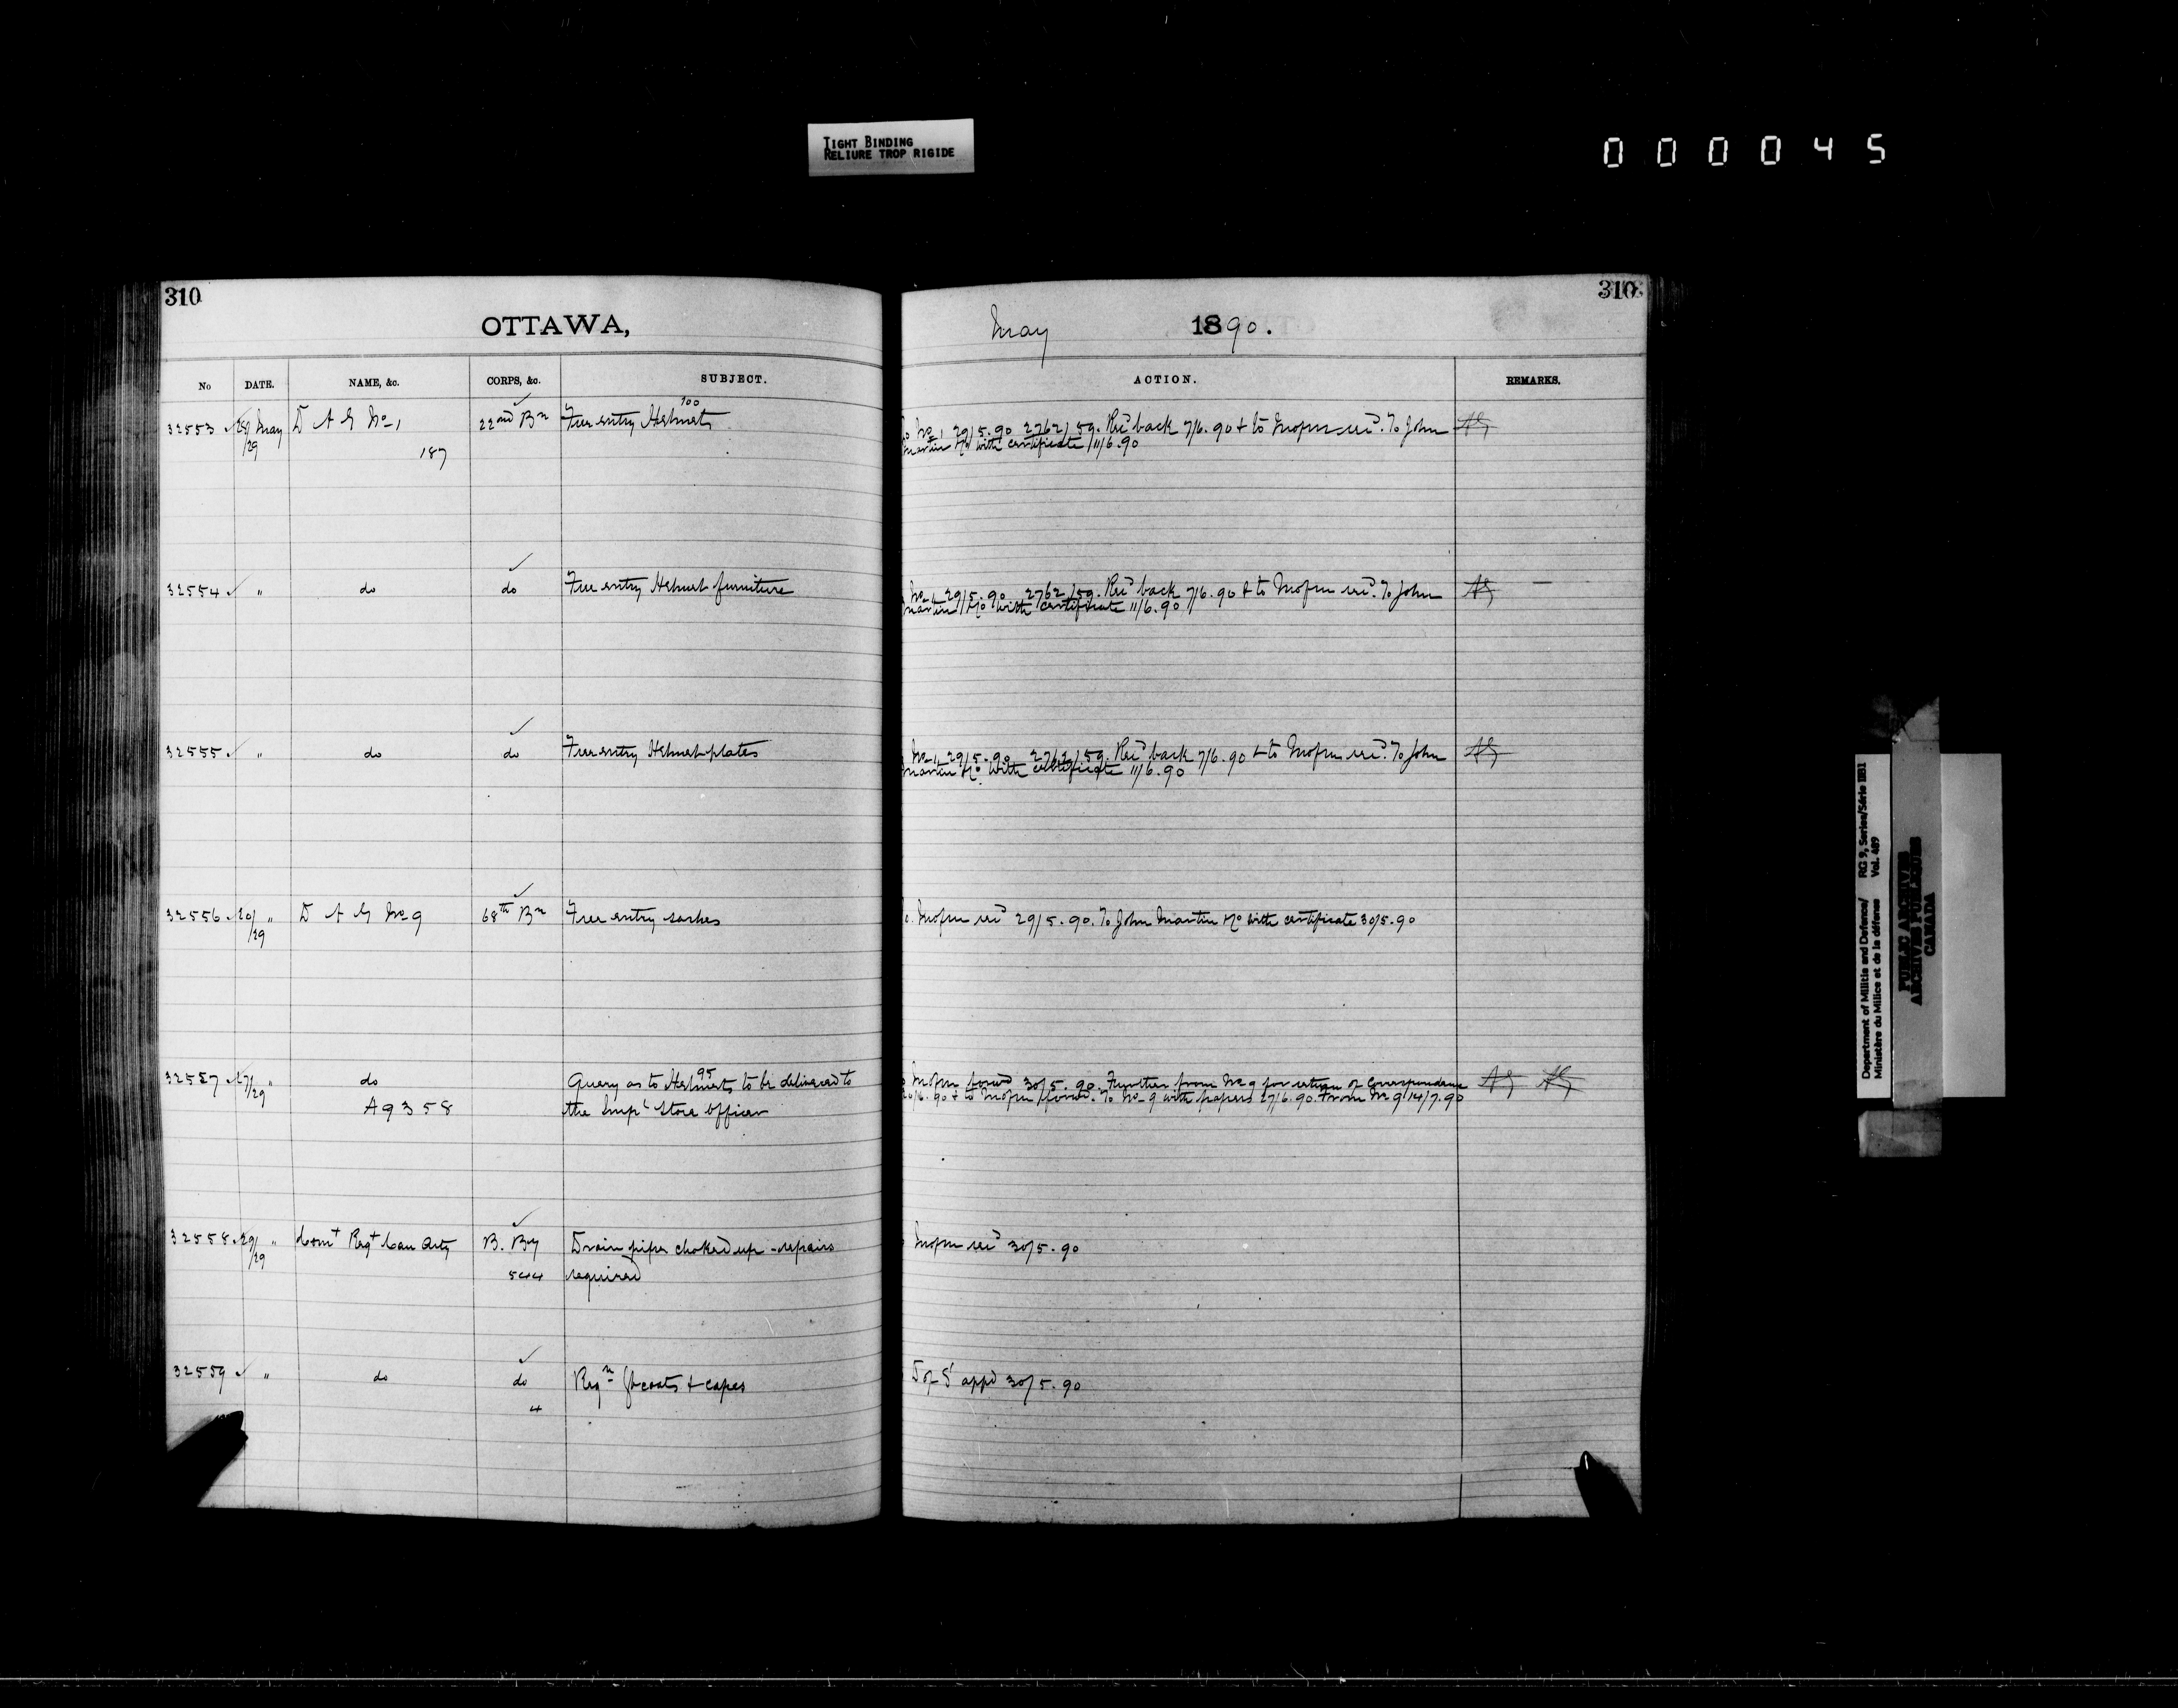 TIGHT BINDING
RELIURE TROP RIGIDE
000045
310
310
OTTAWA,
May 1890.
No DATE. NAME, &c. CORPS, &c. SUBJECT. ACTION. REMARKS.
32553 28/ May D A G No 1 22nd Bn Free entry Helmets No 1 29/5.90 2762/59. Rec'd back 7/6.90 + to Mofm rec'd. To John
/29 187 100 Martin Co with certificate 11/6.90
32554 " do do Free entry Helmet furniture No 1 29/5.90 2762/59. Rec'd back 7/6.90 + to Mofm rec'd. To John
Martin Co with certificate 11/6.90
32555 " do do Free entry Helmet plates No 1 29/5.90 2762/59. Rec'd back 7/6.90 + to Mofm rec'd. To John
Martin Co with certificate 11/6.90
32556 20/ " D A G No 9 68th Bn Free entry sashes Mofm rec'd 29/5.90. To John Martin Co with certificate 30/5.90
/29
32557 27/ " do Query as to 95 Helmets to be delivered to Mofm forwd 30/5.90. Further from No 9 for return of correspondence
/29 A9358 the Impl Store Officer 20/6.90 + to Mofm forwd. To No 9 with papers 27/6.90. From No 9 14/7.90
32558 29/ " Comt Regt Can Arty B. By Drain pipe choked up - repairs Mofm rec'd 30/5.90
/29 544 required
32559 " do do Reqn Gt coats + capes D of S appd 30/5.90
4
Department of Militia and Defence/ RG 9, Series/Série IIB1
Ministère du Milice et de la défense Vol. 489
PUBLIC ARCHIVES
ARCHIVES PUBLIQUES
CANADA